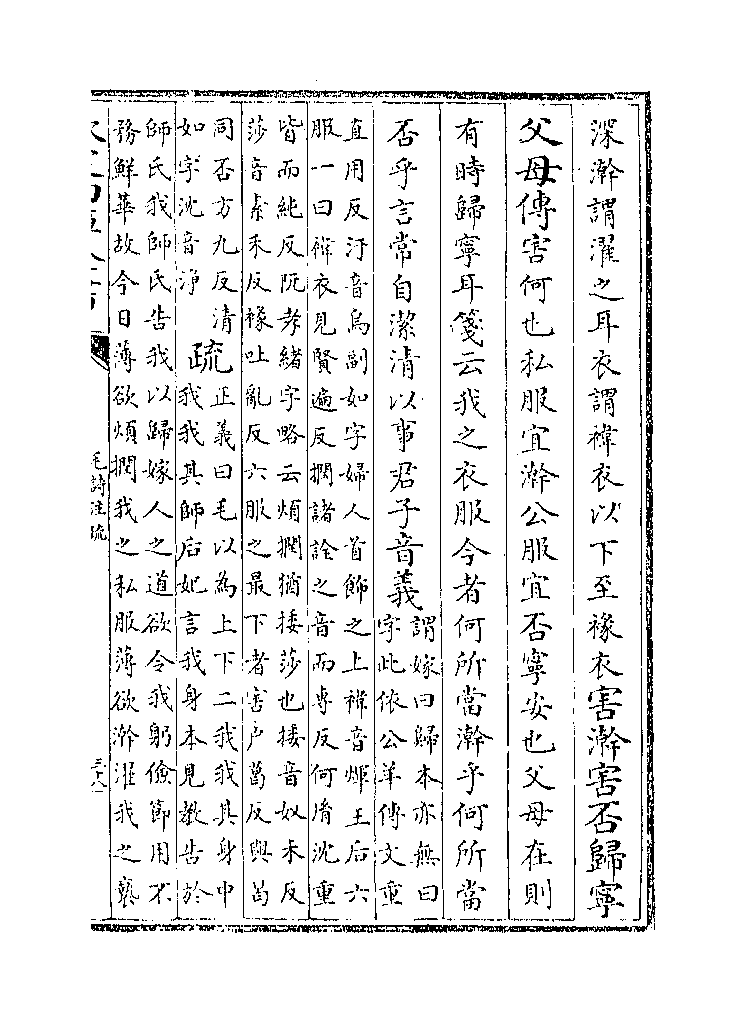 深澣謂濯之耳衣謂褘衣以下至褖衣害澣害否歸寧
父母傳害何也私服宜澣公服宜否寧安也父母在則
有時歸寧耳箋云我之衣服今者何所當澣乎何所當
否乎言常自潔清以事君子音義
謂嫁曰歸本亦無曰
字此依公羊傳文重
直用反汙音烏副如字婦人首飾之上褘音煇王后六
服一曰褘衣見賢遍反撋諸詮之音而専反何𦙍沈重
皆而純反阮孝緒字略云煩撋猶捼莎也捼音奴禾反
莎音素禾反褖吐亂反六服之最下者害户葛反與曷
同否方九反清
如字沈音淨
疏
正義曰毛以為上下二我我其身中
我我其師后妃言我身本見教告於
師氏我師氏告我以歸嫁人之道欲令我躬儉節用不
務鮮華故今日薄欲煩撋我之私服薄欲澣濯我之褻
毛詩注疏
三十八